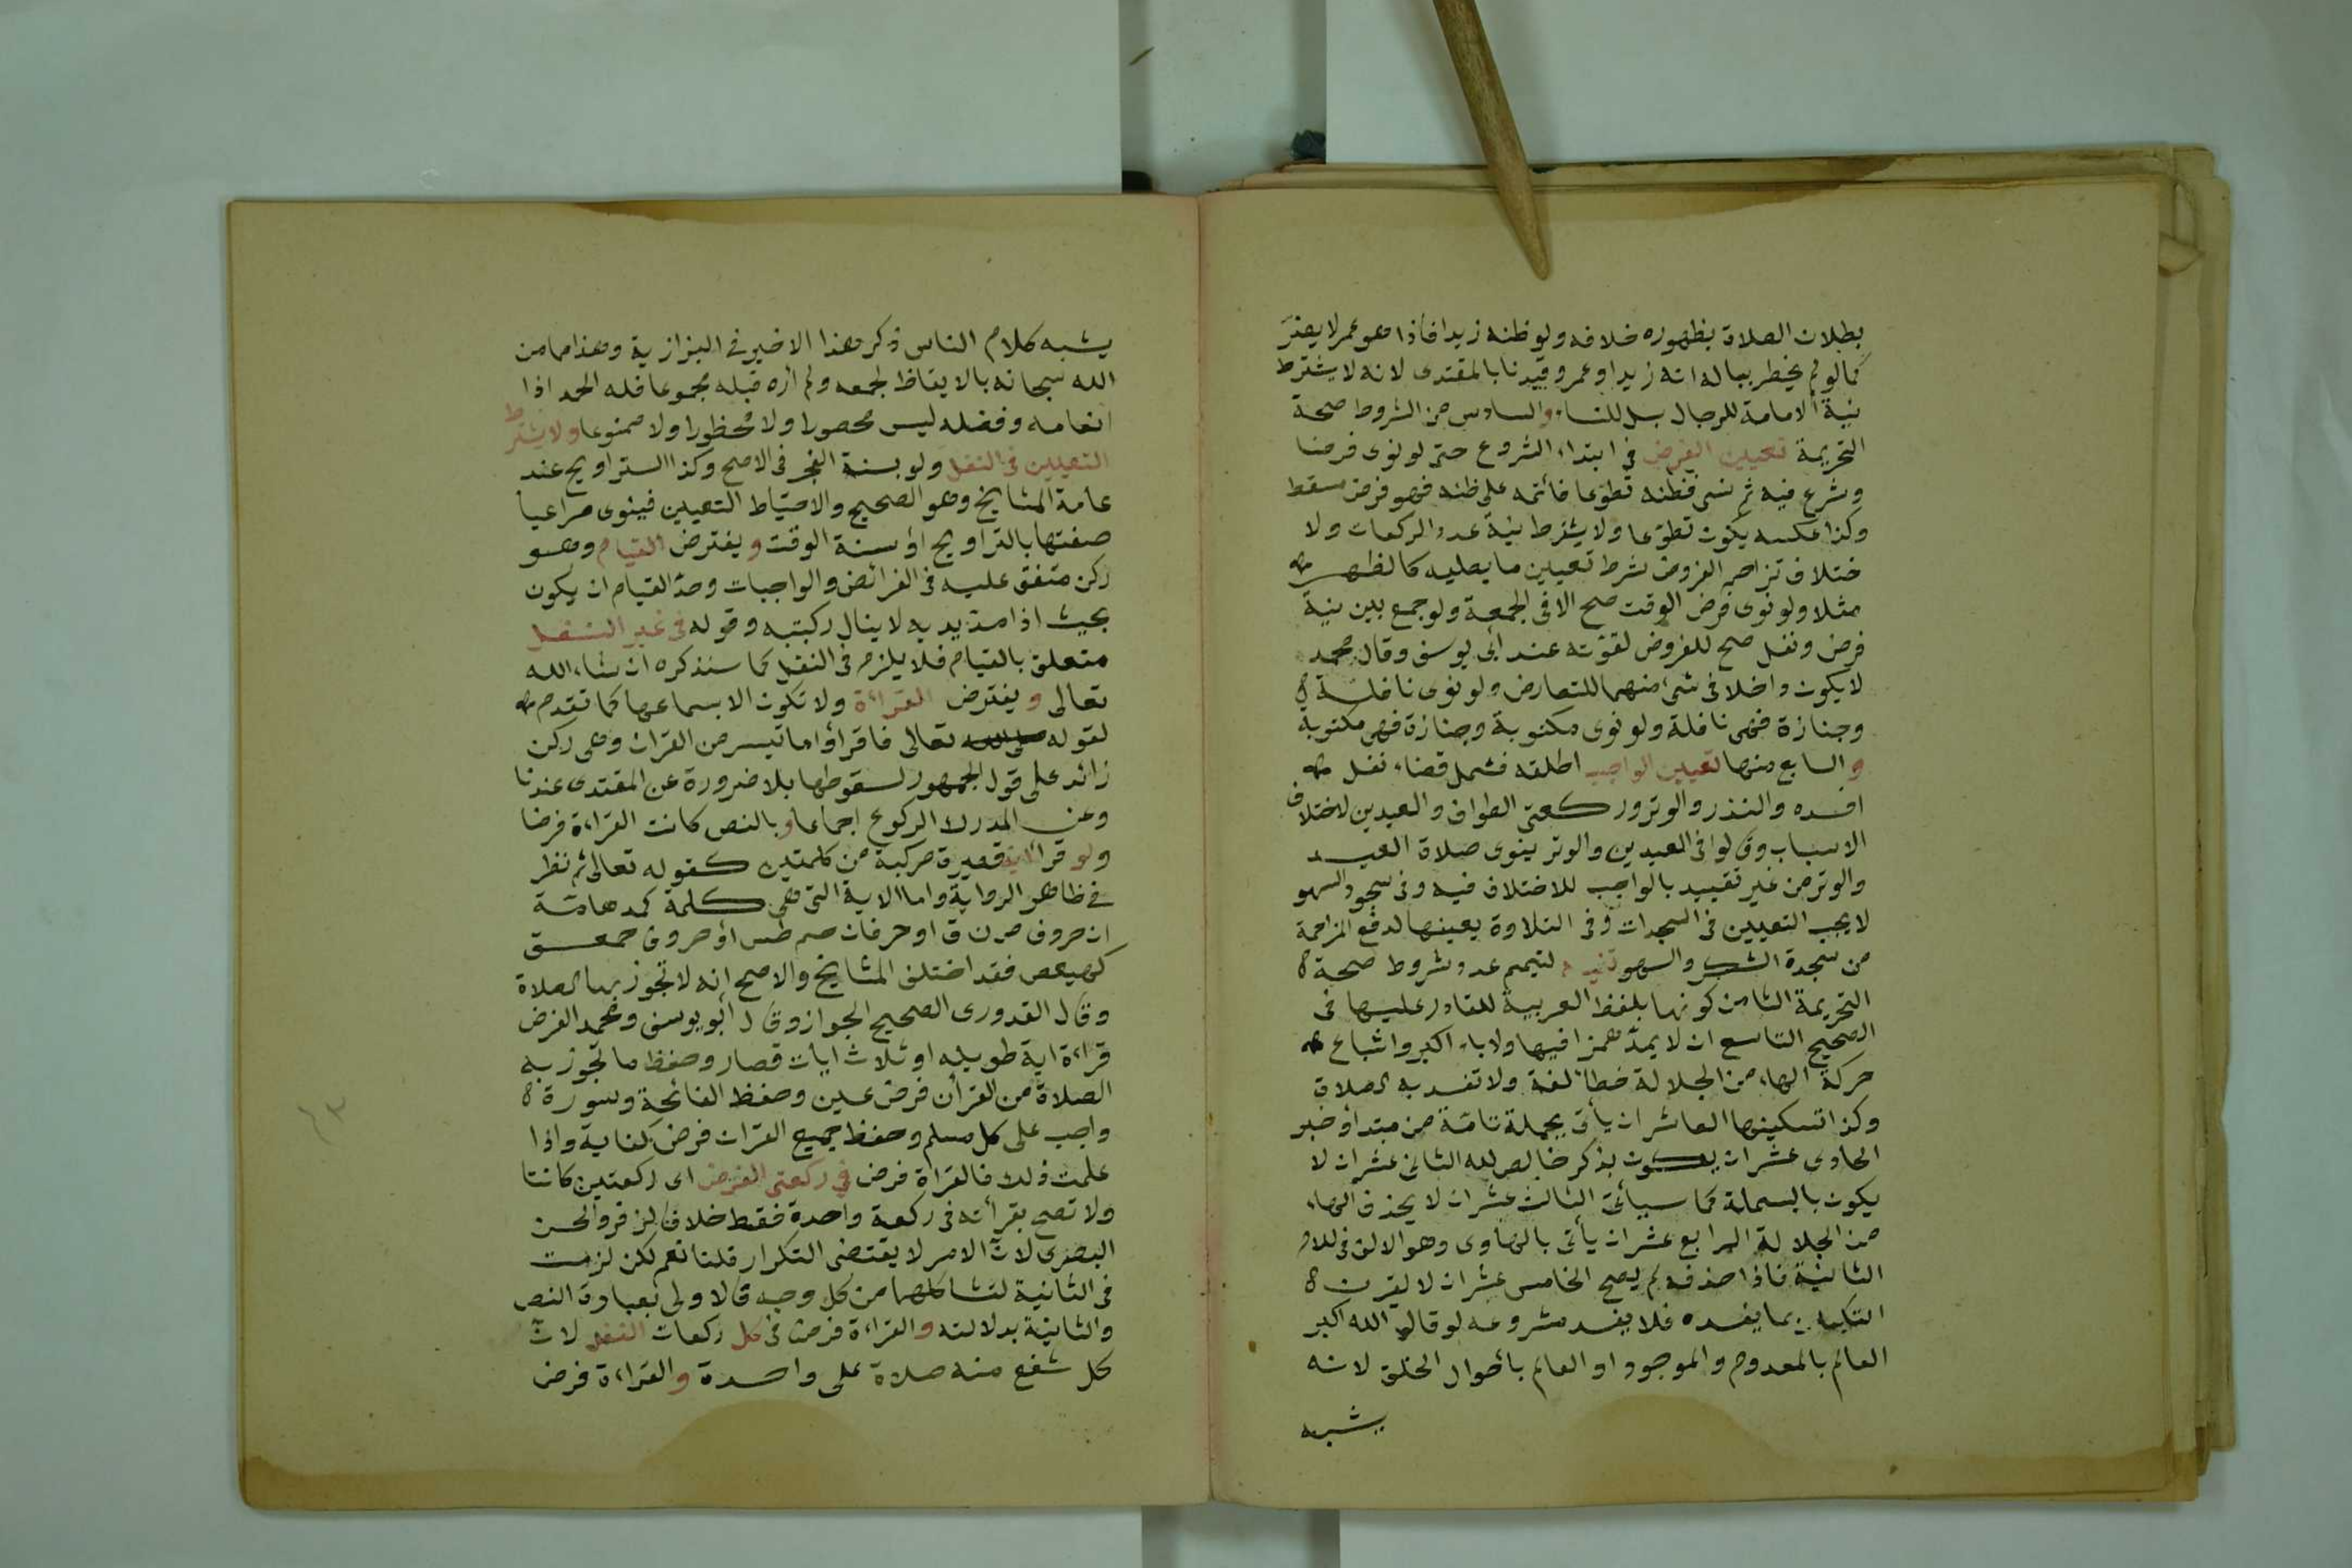 بطلان الصلاة بظهوره خلافه ولو ظنه زيدا فاذا هو عمر لا يضرّ
كما لو لم يخطر بباله انه زيد او عمرو وقيدنا بالمقتدى لانه لا يشترط
نية الامامة للرجال بل للنساء والسادس من الشروط صحة
التحريمة تعيين الفرض فى ابتداء الشروع حتى لو نوى فرضا
وشرع فيه ثم نسى فظنه تطوّعا فأتمه على ظنه فهو فرض مسقط
وكذا عكسه يكون تطوّعا ولا يشترط نية عدد الركعات ولا
ختلاف تزاحم الفروض شرط تعيين ما يصليه كالظهر
مثلا ولو نوى فرض الوقت صح الا فى الجمعة ولو جمع بين نية
فرض ونفل صح للفروض لقوّته عند أبى يوسف وقال محمد
لا يكون داخلا فى شىء منهما للتعارض ولو نوى نافلة
وجنازة فهى نافلة ولو نوى مكتوبة وجنازة فهى مكتوبة
والسابع منها تعيين الواجب اطلقه فشمل قضاء نفل
افسده والنذر والوتر وركعتى الطواف والعيدين لاختلاف
الاسباب وقالوا فى العيدين والوتر ينوى صلاة العيد
والوتر من غير تقييد بالواجب للاختلاف فيه وفى سجود السهو
لا يجب التعيين فى السجدات وفى التلاوة يعينها لدفع المزاحمة
من سجدة الشكر والسهو لتيمم عدد شروط صحة
التحريمة الثامن كونها بلفظ العربية للقادر عليها فى
الصحيح التاسع ان لا يمدّ همزا فيها ولا باء اكبر واشباع
حركة الهاء من الجلالة خطأ لغة ولا تفسد به الصلاة
وكذا تسكينها العاشر ان يأتى بجملة تامّة من مبتدأ وخبر
الحادى عشر ان يكون بذكر خالص لله الثانى عشر ان لا
يكون بالبسملة كما سيأتى الثالث عشر ان لا يحذف الهاء
من الجلالة الرابع عشر ان يأتى بالهاوى وهو الالف فى اللام
الثانية فاذا حذفه لم يصح الخامس عشر ان لا يقرن
التكبير بما يفسده فلا يفسد مشروعه لو قال الله اكبر
العالم بالمعدوم والموجود او العالم بأحوال الخلق لانه
يشبه
يشبه كلام الناس ذكر هذا الاخير فى البزازية وهذا مما من
الله سبحانه بالايقاظ لجمعه ولم أره قبله مجموعا فله الحمد اذا
انعامه وفضله ليس محصورا ولا محظورا ولا ممنوعا ولا يشترط
التعيين فى النفل ولو بسنة الفجر فى الاصح وكذا التراويح عند
عامة المشايخ وهو الصحيح والاحتياط التعيين فينوى مراعيا
صفتها بالتراويح أو سنة الوقت ويفترض القيام وهو
ركن متفق عليه فى الفرائض والواجبات وحدّ القيام ان يكون
بحيث اذا مدّ يديه لا ينال ركبتيه وقوله فى غير النفل
متعلق بالقيام فلا يلزم فى النفل كما سنذكره ان شاء الله
تعالى ويفترض القراءة ولا تكون الا بسماعها كما تقدم
لقوله تعالى فاقرأوا ما تيسر من القران وهى ركن
زائد على قول الجمهور لسقوطها بلا ضرورة عن المقتدى عندنا
وعن المدرك الركوع اجماعا وبالنص كانت القراءة فرضا
ولو قرأ آية قصيرة مركبة من كلمتين كقوله تعالى ثم نظر
فى ظاهر الرواية واما الاية التى هى كلمة كمدهامّتان
ان حروف ص ن ق او حرفان حم طس أو حروف حمعسق
كهيعص فقد اختلف المشايخ والاصح انه لا تجوز بها الصلاة
وقال القدورى الصحيح الجواز وقال أبو يوسف ومحمد الفرض
قراءة اية طويله او ثلاث ايات قصار وحفظ ما تجوز به
الصلاة من القرأن فرض عين وحفظ الفاتحة وسورة
واجب على كل مسلم وحفظ جميع القران فرض كفاية واذا
علمت ذلك فالقراة فرض فى ركعتى الفرض اى ركعتين كانتا
ولا تصح بقرأته فى ركعة واحدة فقط خلافا لزفر والحسن
البصرى لانّ الامر لا يقتضى التكرار قلنا نعم لكن لزمت
فى الثانية لتشاكلهما من كل وجه فالاولى بعبارة النص
والثانية بدلالته والقراءة فرض فى كل ركعات النفل لانّ
كل شفع منه صلاة على واحدة والقراءة فرض